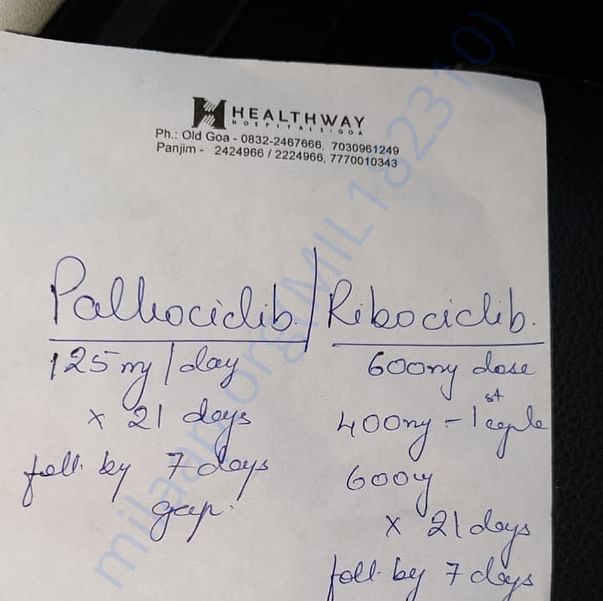 HEALTHWAY
HOSPITALS - GOA
Ph.: Old Goa - 0832-2467666, 7030961249
Panjim - 2424966 / 2224966, 7770010343
Palbociclib. / Ribociclib.
125 mg / day
x 21 days
foll. by 7 days
gap.
600mg dose
400mg - 1st cycle
600mg
x 21 days
foll. by 7 days
milaap.org(MIL182310)